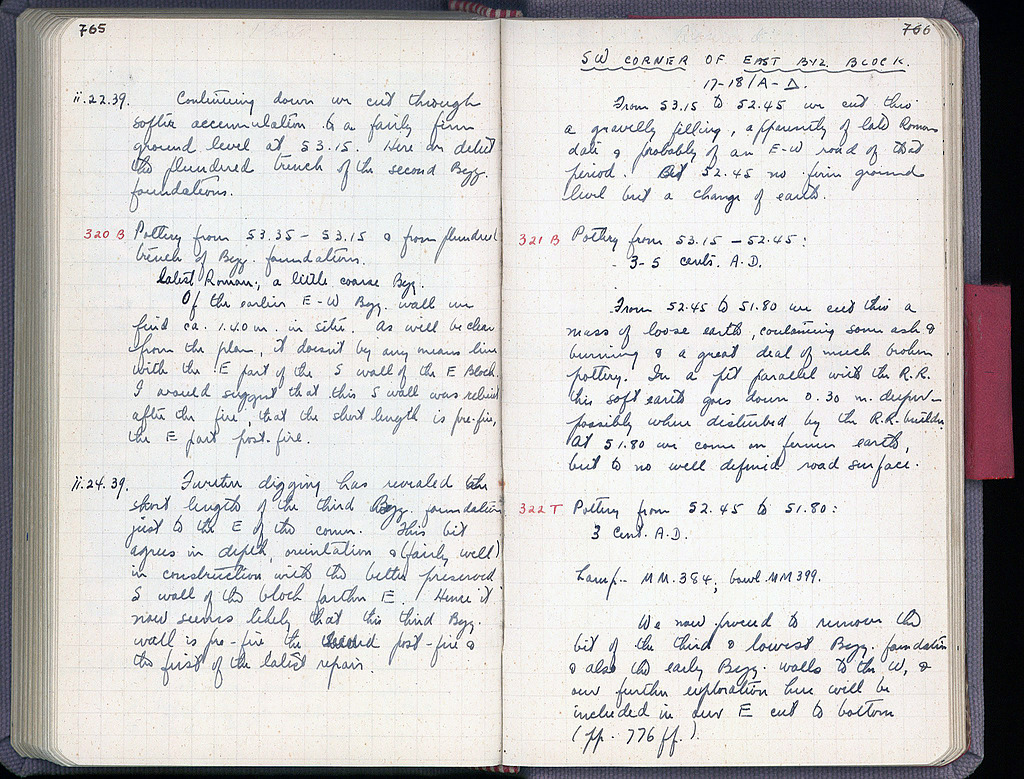 765
ii.22.39. Continuing down we cut through
softer accumulation to a fairly firm
ground level at 53.15. Here we detect
the plundered trench of the second Byz.
foundations.
320 B Pottery from 53.35 – 53.15 & from plundered
trench of Byz. foundations.
latest Roman, a little coarse Byz.
Of the earlier E-W Byz. wall we
find ca. 1.40 m. in situ. As will be clear
from the plan, it doesn't by any means line
with the E part of the S wall of the E Block.
I would suggest that this S wall was rebuilt
after the fire, that the short length is pre-fire,
the E part post-fire.
ii.24.39. Further digging has revealed the
short length of the third Byz. foundation
just to the E of the corner. This bit
agrees in depth, orientation & (fairly well)
in construction with the better preserved
S wall of the block farther E. Hence it
now seems likely that this third Byz.
wall is pre-fire the second post-fire &
the first of the latest repair.
766
SW CORNER OF EAST BYZ. BLOCK.
17-18/A-Δ.
From 53.15 to 52.45 we cut thro
a gravelly filling, apparently of late Roman
date & probably of an E-W road of that
period. At 52.45 no firm ground
level but a change of earth.
321 B Pottery from 53.15 – 52.45:
3-5 cents. A.D.
From 52.45 to 51.80 we cut thro a
mass of loose earth, containing some ash &
burning & a great deal of much broken
pottery. In a pit parallel with the R.R.
this soft earth goes down 0.30 m. deeper –
possibly where disturbed by the R.R. builders.
At 51.80 we come on firmer earth,
but to no well defined road surface.
322 T Pottery from 52.45 to 51.80:
3 Cent. A.D.
Lamp – MM.384, bowl MM 399.
We now proceed to remove the
bit of the third & lowest Byz. foundation
& also the early Byz. walls to the W, &
our further exploration here will be
included in our E cut to bottom
(pp. 776 ff.).